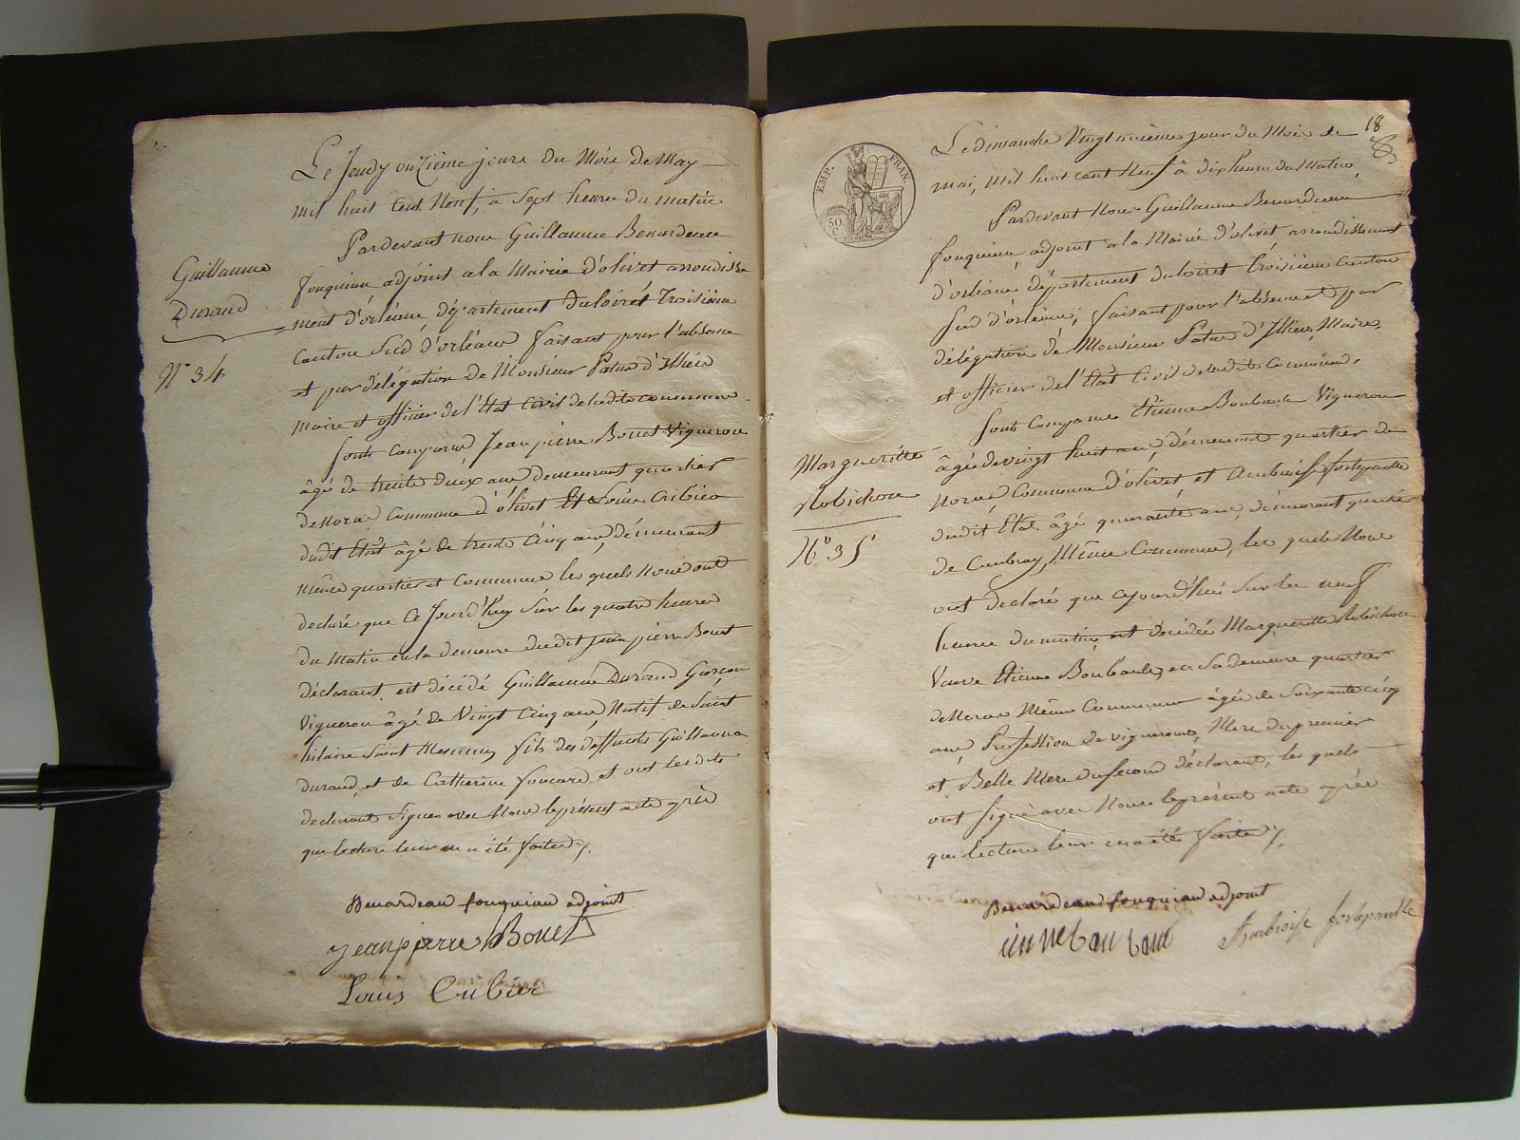 Le Jeudy onzième jour du Mois de May
mil huit Cent Neuf, à Sept heures du matin
Pardevant nous Guillaume Benardeau
fouquiau adjoint a la Mairie d'olivet arrondisse
ment d'orléans, département du loiret Troisième
Canton Sud d'orléans faisant pour l'absence
et par délégation de Monsieur Patas d'Illiers
maire et officier de l'Etat Civil de ladite commune
Guillaume
Durand
N° 34
Sont comparus Jean pierre Bouet Vigneron
âgé de trente deux ans demeurant quartier
de Noras Commune d'olivet Et Louis Cribier
dudit Etat âgé de trente Cinq ans, demeurant
même quartier et Commune les quels nous ont
declaré que Ce Jourd'huy Sur les quatre heures
du Matin en la demeure du dit Jean pierre Bouet
déclarant, est décédé Guillaume Durand Garçon
Vigneron âgé de Vingt Cinq ans, Natif de Saint
hilaire Saint Mesmin, fils des deffuncts Guillaume
durand, et de Catherine foucard, et ont lesdits
declarant Signés avec Nous le présent acte après
que lecture leur en a été faite ./.
Benardeau fouquiau adjoint
jean pierre Bouet
Louis Cribier
18
EMP. FRAN.
50
C.
Le dimanche Vingt unième jour du Mois de
mai, mil huit cent Neuf à dix heures du Matin,
Pardevant Nous Guillaume Benardeau
fouquiau, adjoint a la Mairie d'olivet arrondissement
d'orléans, département du loiret troisième Canton
Sud d'orléans, faisant pour l'absence et par
délégation de Monsieur Patas d'Illiers, Maire,
et officier de l'Etat Civil de ladite Commune.
Margueritte
Robichon
N° 35
Sont Comparus Etienne Boubault Vigneron
âgé de vingt huit ans, démeurant quartier de
Noras Commune d'olivet et Ambroise fortepaulle
dudit Etat âgé quarante ans, démeurant quartier
de Cambray, Même Commune, les quels Nous
ont declaré que cejourd'hui Sur les neuf
heures du matin, est décédée Margueritte Robichon
Veuve Etienne Boubault, en Sa demeure quartier
de Noras Même Commune âgée de Soixante cinq
ans Profession de vigneronne, Mere du premier
et Belle Mere du Second déclarant, les quels
ont Signé avec Nous le présent acte après
que lecture leur en a été faite ./.
Benardeau fouquiau adjoint
Ambroise fortepaulle